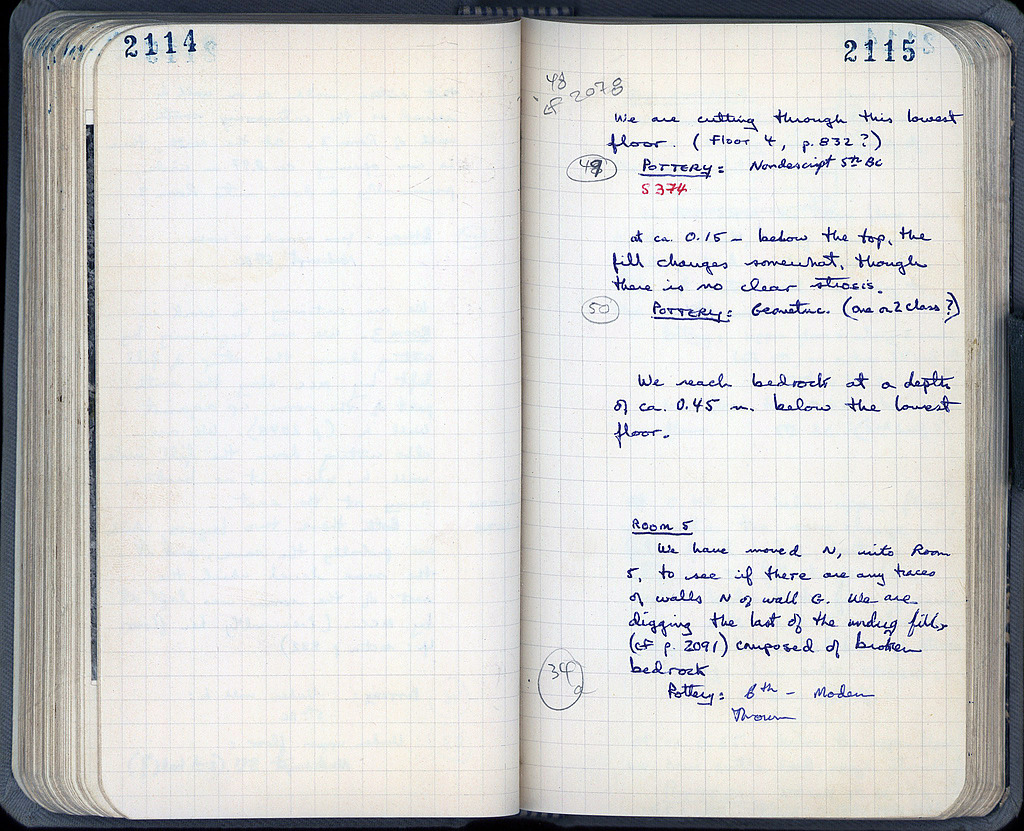 2114
2115
48
cf 2078
We are cutting through this lowest
floor. (Floor 4, p. 832?)
49 POTTERY: Nondescript 5th BC
S 374
at ca. 0.15 – below the top, the
fill changes somewhat, though
there is no clear strosis.
50 POTTERY: Geometric. (one or 2 class?)
We reach bedrock at a depth
of ca. 0.45 m. below the lowest
floor.
ROOM 5
We have moved N, into Room
5, to see if there are any traces
of walls N of wall G. We are
digging the last of the undug fill,
(cf p. 2091) composed of broken
bedrock
34a Pottery: 6th – Modern
Thrown